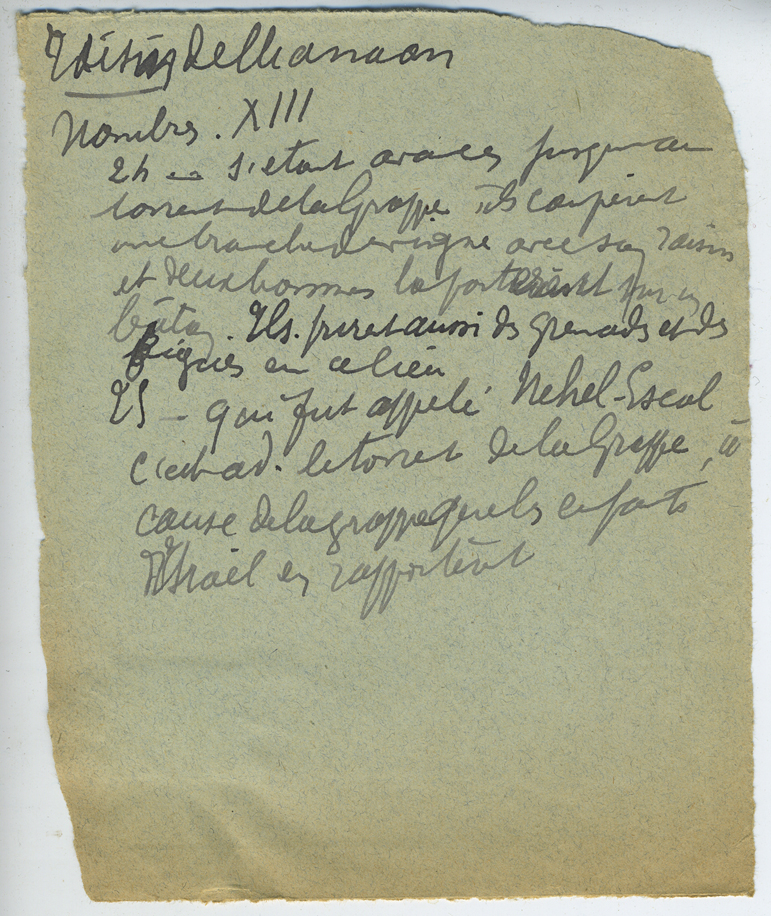 Raisin de Chanaan
Nombres. XIII
24 — s'étant avancés jusqu'au
torrent de la Grappe ils coupèrent
une branche de vigne avec son raisin
et deux hommes la portèrent sur un
bâton. Ils prirent aussi des grenades et des
figues en ce lieu
25 — qui fut appelé Nehel-Escol
c'est à d. le torrent de la Grappe, à
cause de la grappe que les enfants
d'Israël en rapportèrent